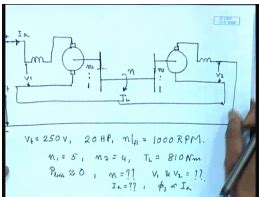 I_a
n_1
n_2
n
V_1
V_2
T_L
V_t = 250V, 20 HP, n|_fl = 1000 RPM.
n_1 = 5, n_2 = 4, T_L = 810 Nm
P_loss ≈ 0, n = ?? V_1 & V_2 = ??.
I_a = ??, φ_1 ∝ I_a